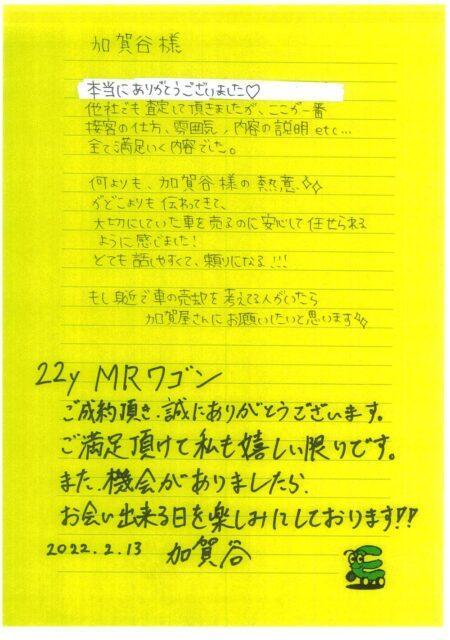 加賀谷様
本当にありがとうございました♡
他社でも査定して頂きましたが、ここが一番
接客の仕方、雰囲気、内容の説明etc…
全て満足いく内容でした。
何よりも、加賀谷様の熱意✧✧
がどこよりも伝わってきて、
大切にしていた車を売るのに安心して任せられる
ように感じました!
とても話しやすくて、頼りになる!!!
もし身近で車の売却を考えてる人がいたら
加賀屋さんにお願いしたいと思います✧✧
22y MRワゴン
ご成約頂き、誠にありがとうございます。
ご満足頂けて私も嬉しい限りです。
また、機会がありましたら、
お会い出来る日を楽しみにしております!!
2022.2.13 加賀谷